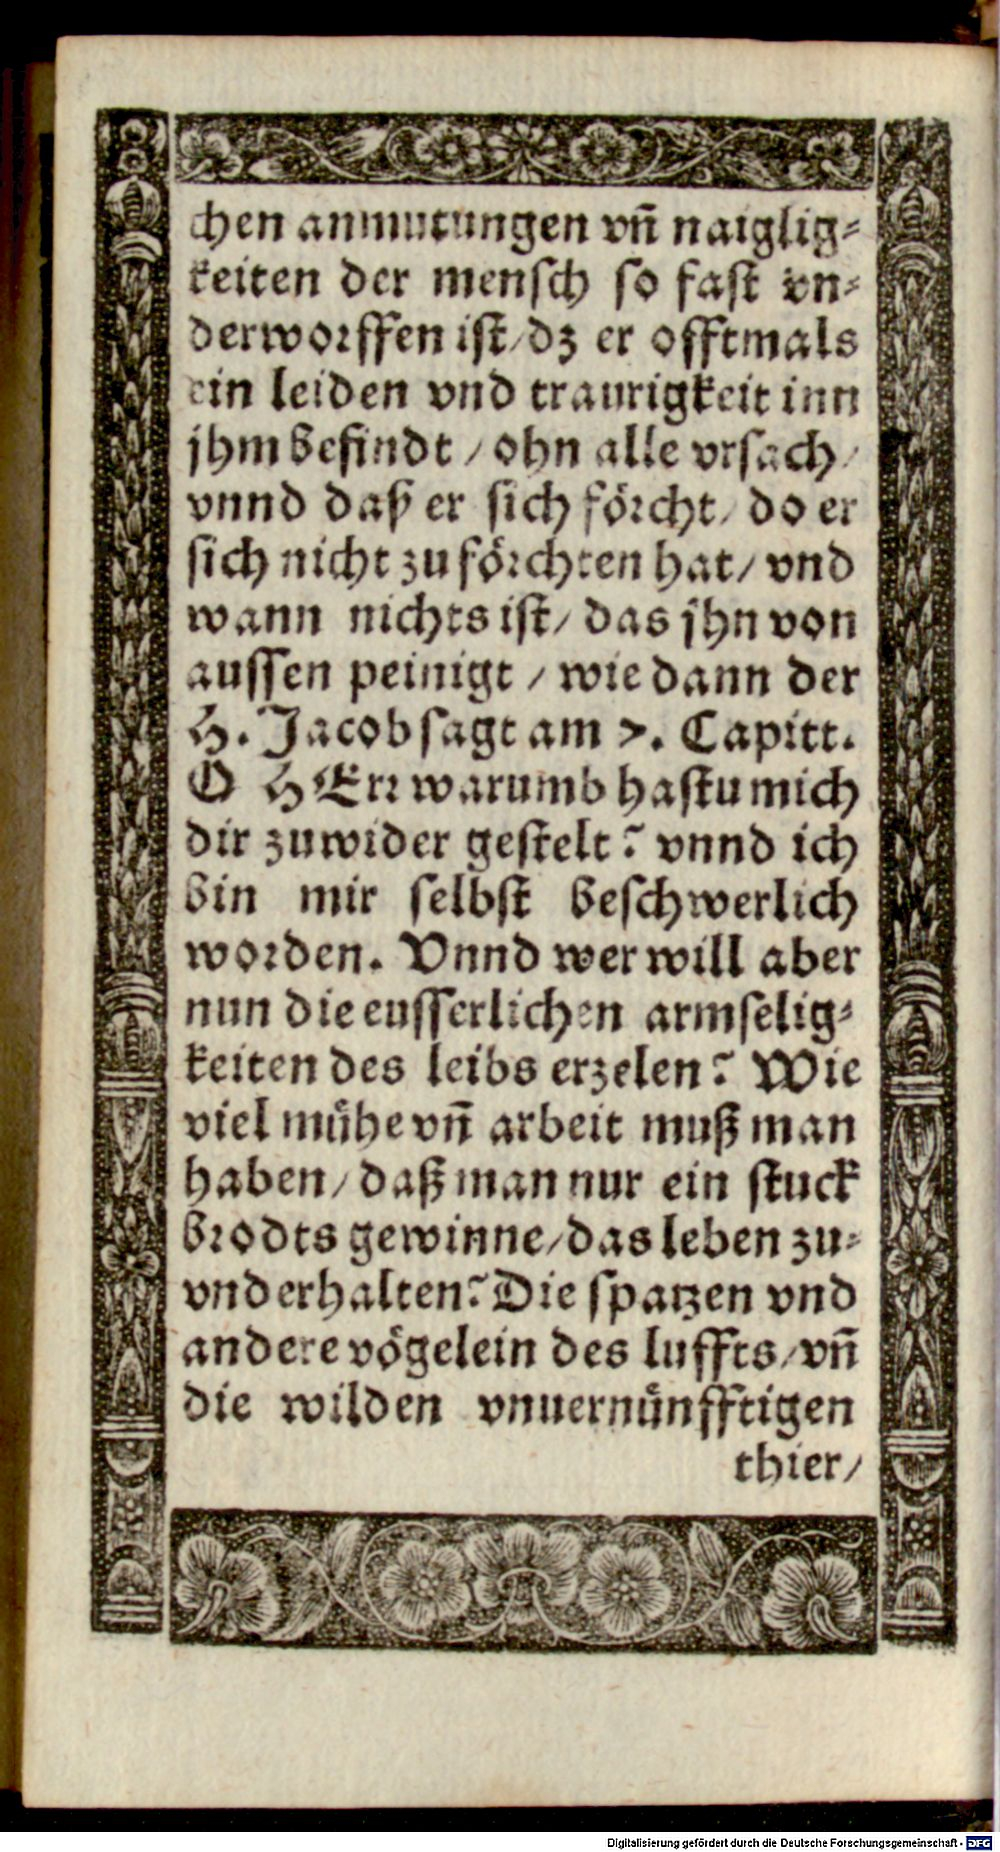 chen anmutungen vn̄ naiglig⸗
keiten der mensch so fast vn⸗
derworffen ist/ dz er offtmals
ein leiden vnd traurigkeit inn
jhm befindt / ohn alle vrsach/
vnnd daß er sich förcht/ do er
sich nicht zu förchten hat/ vnd
wann nichts ist/ das jhn von
aussen peinigt / wie dann der
H. Jacob sagt am 7. Capitt.
O HErr warumb hastu mich
dir zuwider gestelt? vnnd ich
bin mir selbst beschwerlich
worden. Vnnd wer will aber
nun die eusserlichen armselig⸗
keiten des leibs erzelen? Wie
viel mühe vn̄ arbeit muß man
haben/ daß man nur ein stuck
brodts gewinne/ das leben zu⸗
vnderhalten? Die spatzen vnd
andere vögelein des luffts/ vn̄
die wilden vnuernünfftigen
thier/
Digitalisierung gefördert durch die Deutsche Forschungsgemeinschaft - DFG